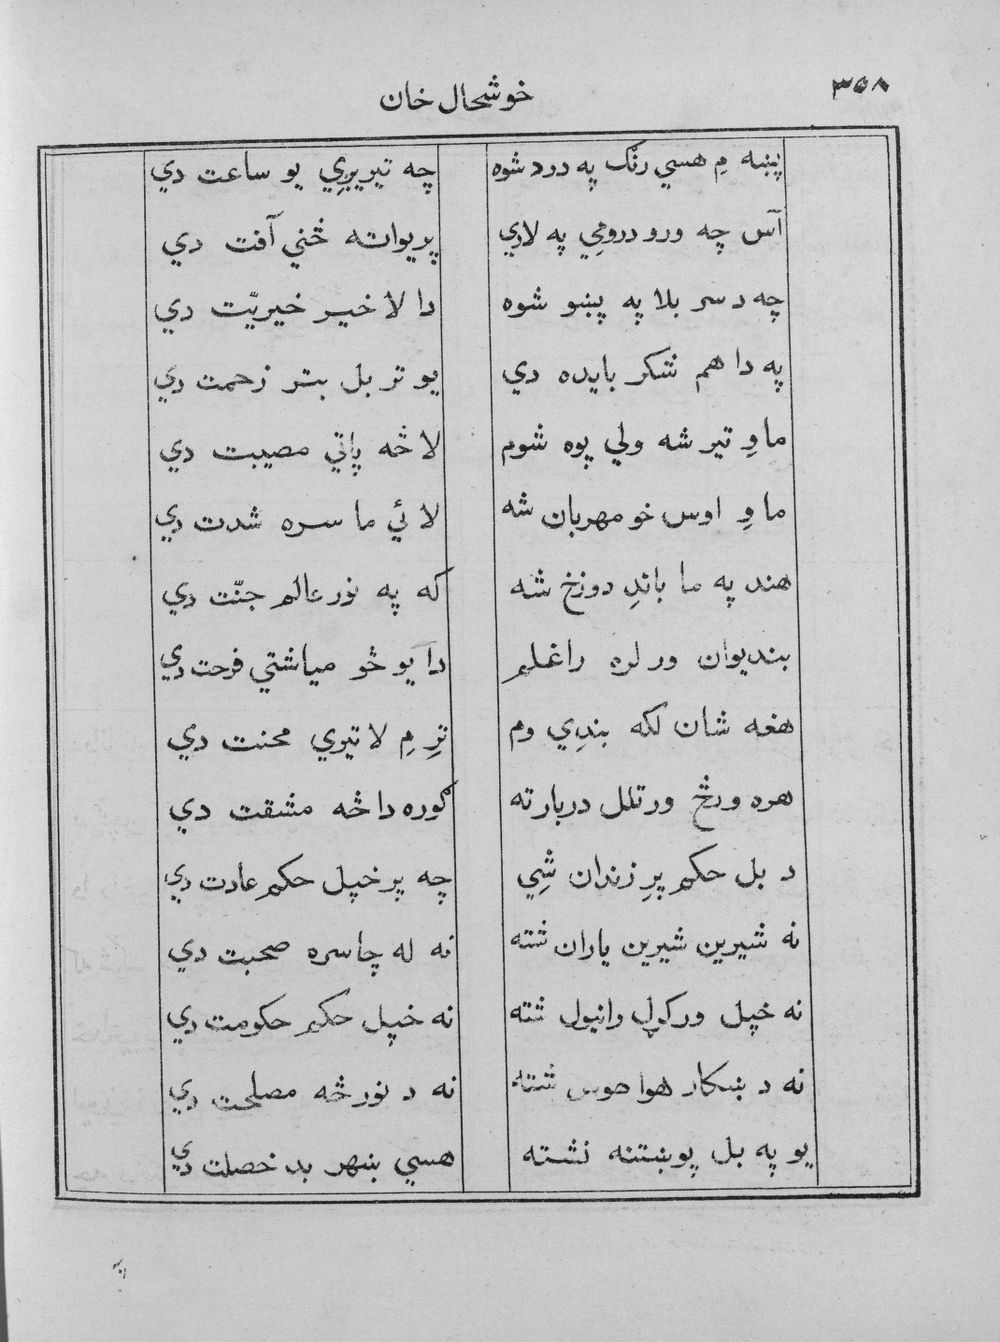 ۳۵۸
خوشحال خان
پښه مِ هسي رنګ په درد شوه چه تیریږِي یو ساعت دي
آس چه ورو درومِي په لارِي پریواته ځني آفت دي
چه د سر بلا په پښو شوه دا لا خیر خیریّت دي
په دا هم شکر بایده دي یو تر بل بتر زحمت دي
ما وِ تیر شه ولي پوه شوم لا څه پاتي مصیبت دي
ما وِ اوس خو مهربان شه لا ئي ما سره شدت دي
هند په ما باندِ دوزخ شه که په نور عالم جنّت دي
بندیوان ور لره راغلم دا یو څو میاشتي فرحت دي
هغه شان لکه بندِي وم ترِ مِ لا تیري محنت دي
هره ورځ ورتلل دربار ته ګوره دا څه مشقت دي
د بل حکم پرِ زندان شِي چه پر خپل حکم عادت دي
نه شیرین شیرین یاران شته نه له چا سره صحبت دي
نه خپل ورکړل رانیول شته نه خپل حکم حکومت دي
نه د ښکار هوا هوس شته نه د نور څه مصلحت دي
یو په بل پوښتنه نشته هسي ښهر بد خصلت دي